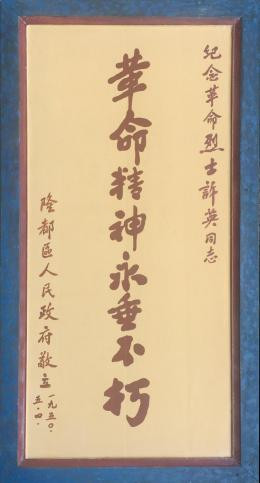 紀念革命烈士許英同志
革命精神永垂不朽
隆都區人民政府敬立
一九五〇.
五.四.